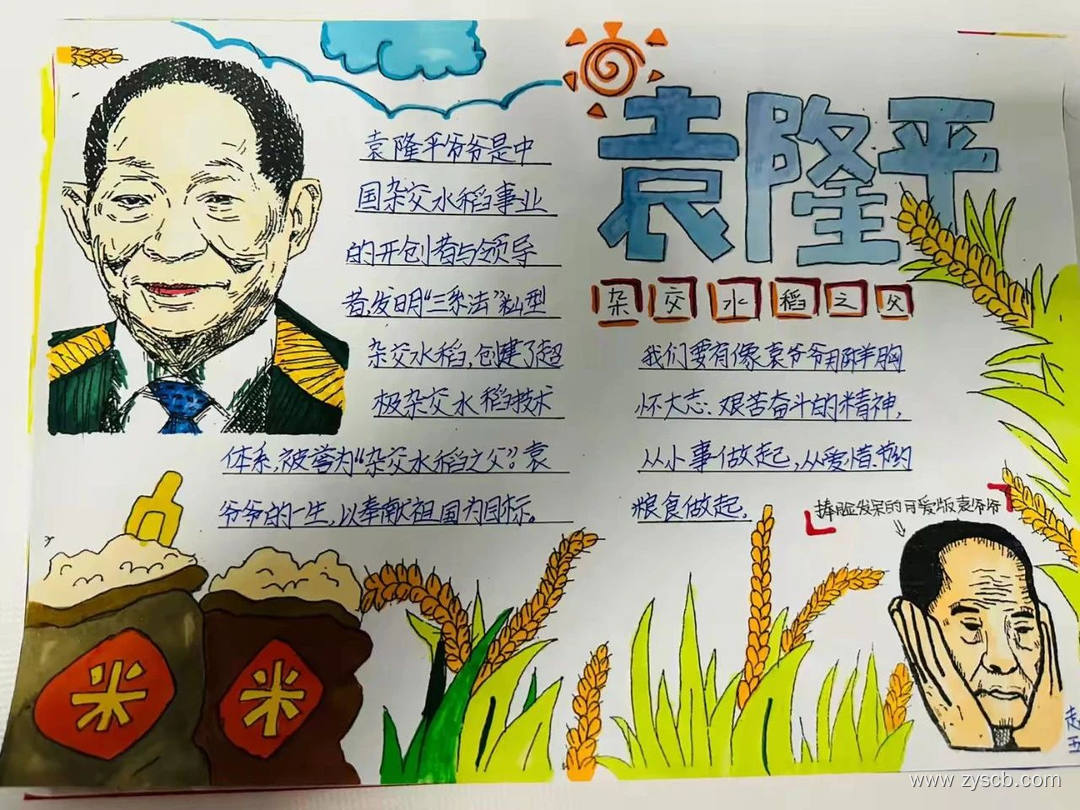 袁隆平
杂交水稻之父
袁隆平爷爷是中
国杂交水稻事业
的开创者与领导
者,发明"三系法"籼型
杂交水稻,创建了超
极杂交水稻技术
体系,被誉为"杂交水稻之父"。袁
爷爷的一生,以奉献祖国为目标。
我们要有像袁爷爷那样胸
怀大志、艰苦奋斗的精神,
从小事做起,从爱惜、节约
粮食做起.
捧脸发呆的可爱版袁爷爷
米
米
www.zyscb.com